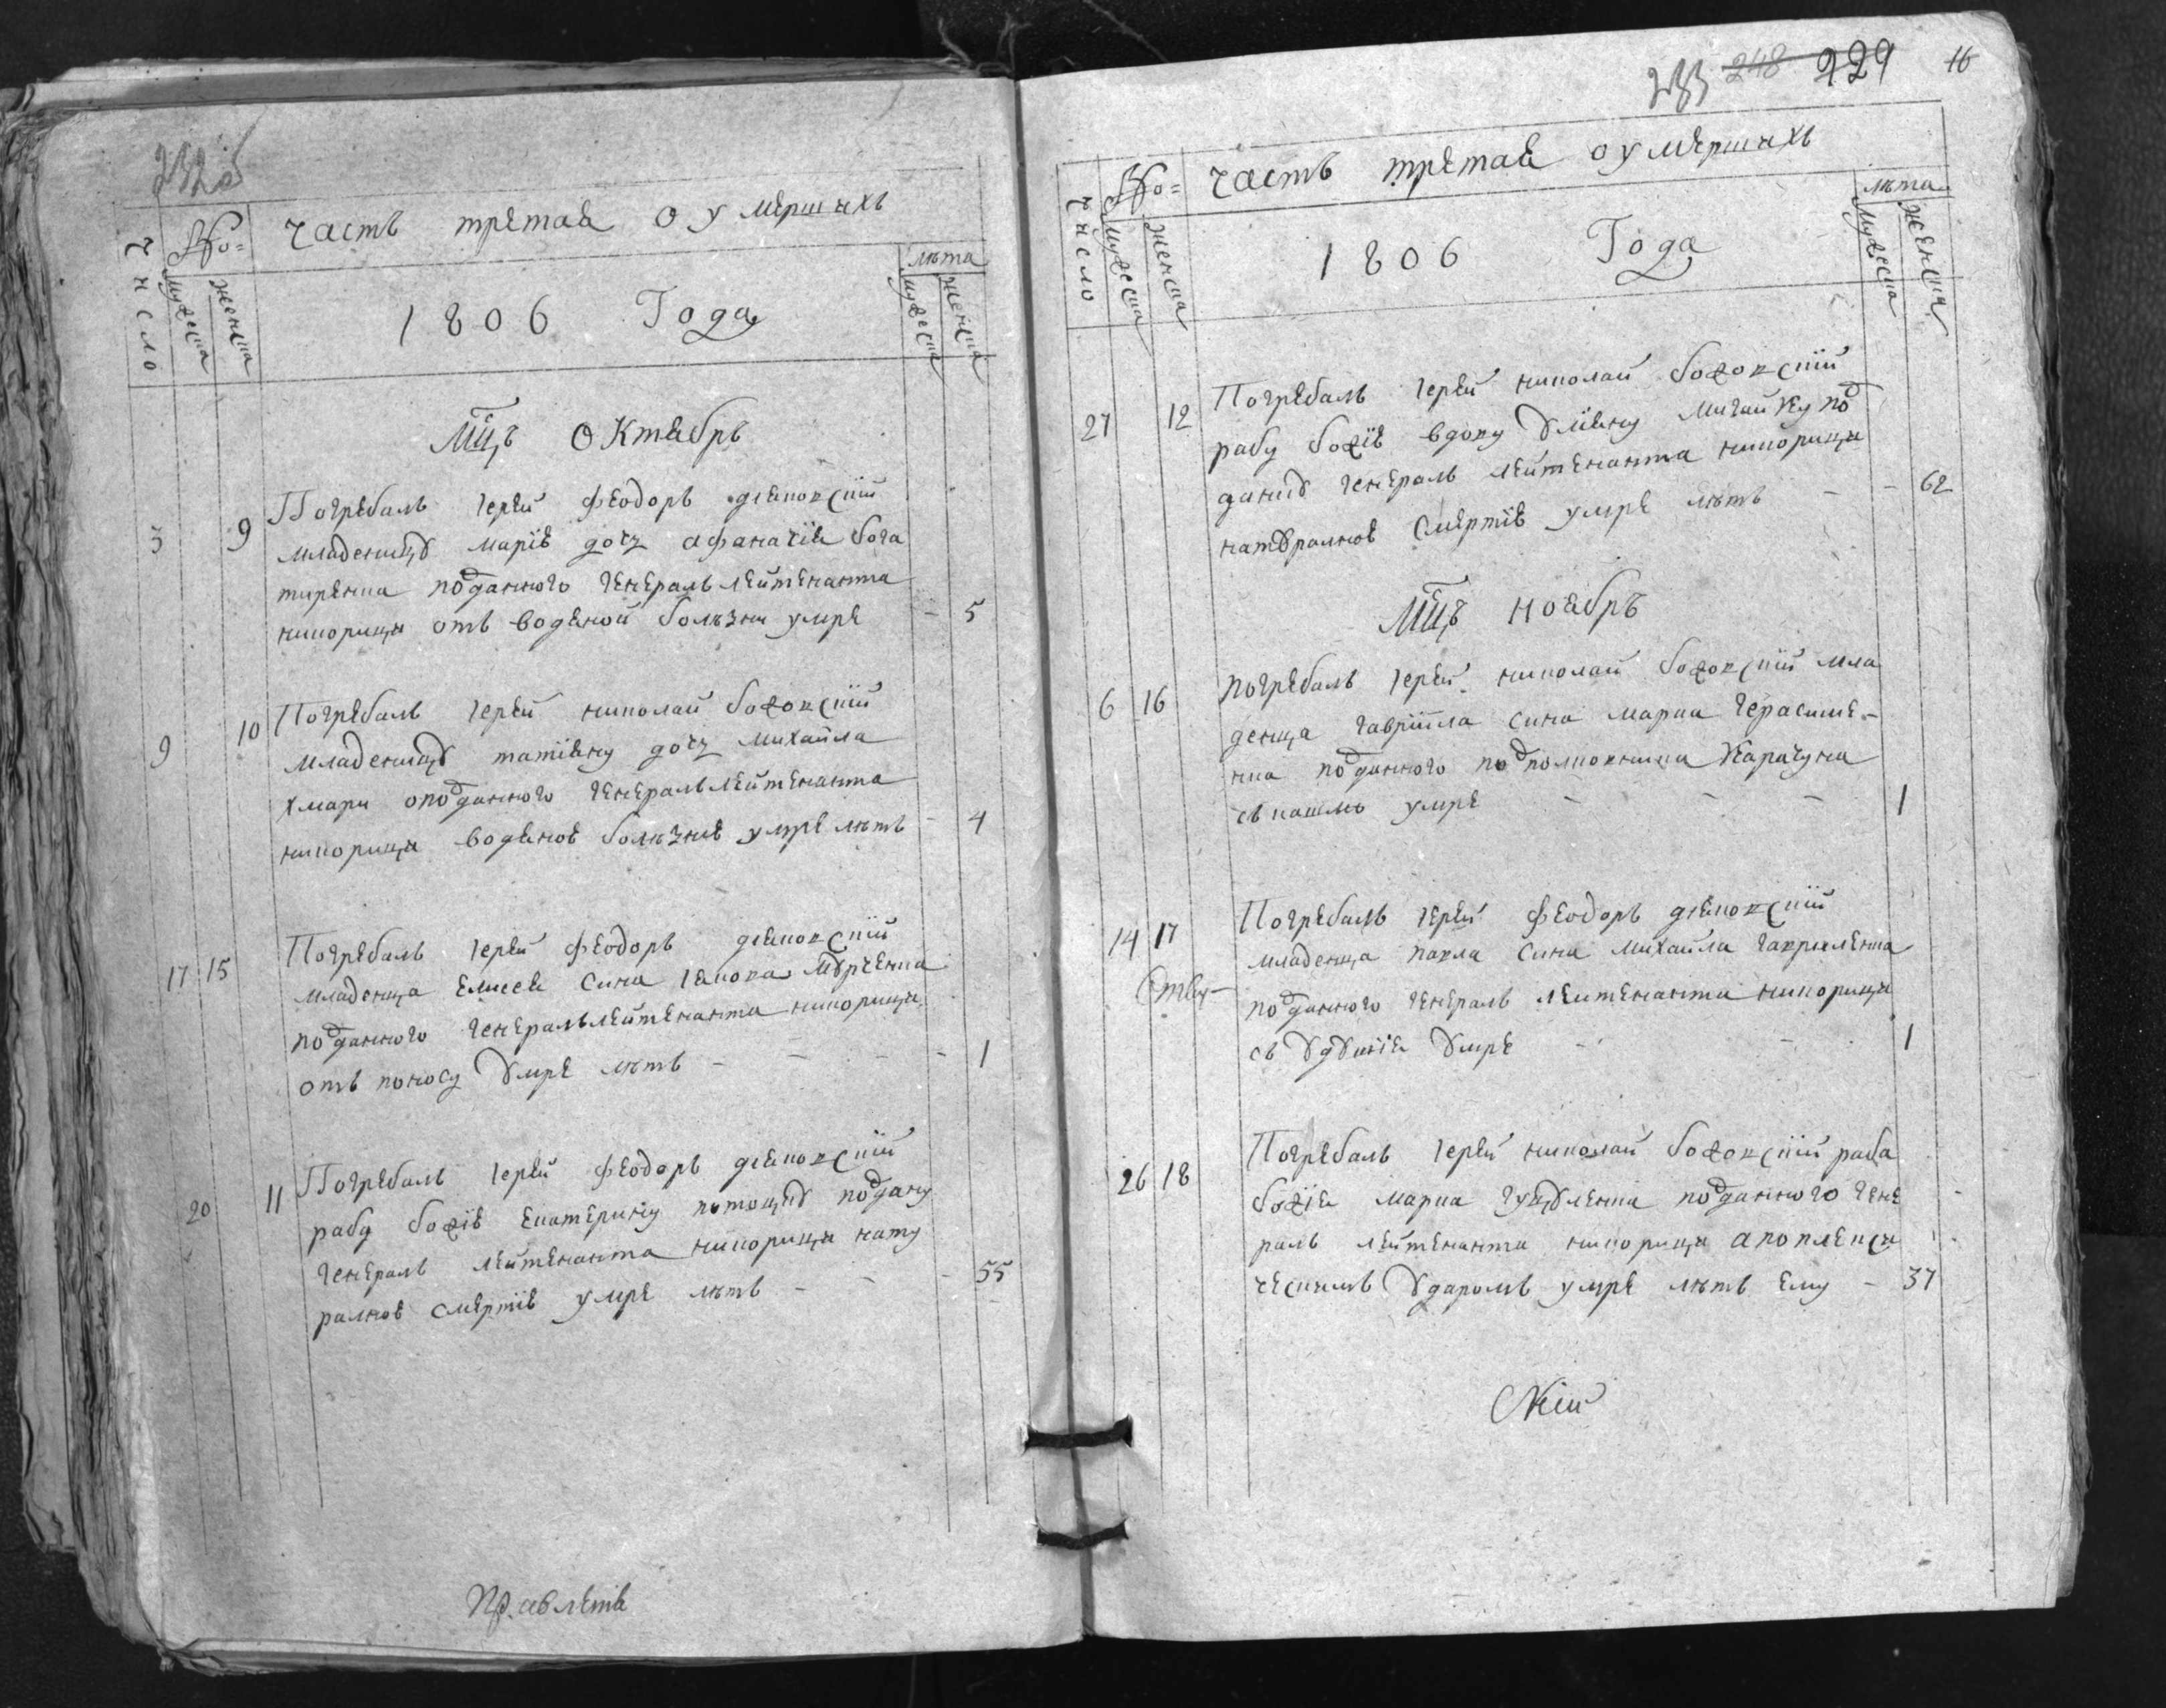 часть третая о умершихъ
Число
Но=
мужеска
женска
1806 Года
лѣта
мужеска
женска
мц҃ъ октябрь
3 9 Погребалъ іерей феодоръ діяковскій
младеницу марію дочъ афанасія бога
тиренка подданного генералълейтенанта
кикорици отъ водяной болѣзни умре - 5
9 10 Погребалъ іерей николай божовскій
младеницу татіяну дочъ михаила
хмари оподданного генералълейтенанта
кикорици водяною болѣзнію умре лѣтъ - 4
17 15 Погребалъ іерей феодоръ діяковскій
младенца елисея сина іакова мурченка
подданного генералълейтенанта кикорици
отъ поносу умре лѣтъ - - - 1
20 11 Погребалъ іерей феодоръ діяковскій
рабу божію екатерину подану
генералъ лейтенанта кикорици нату
ралною смертію умре лѣтъ - - - 55
233 248 229 16
часть третая о умершихъ
Число
Но=
мужеска
женска
1806 Года
лѣта
мужеска
женска
27 12 Погребалъ іерей николай божовскій
рабу божію вдову уліяну михайку под
даную генералъ лейтенанта кикорици
натуралною смертію умре лѣтъ - - 62
мц҃ъ ноябръ
6 16 погребалъ іерей николай божовскій мла
денца гавріила сина марка герасиме-
нка подданного подполковника карачуна
съ кашлю умре - - - 1
14 17 Погребалъ іерей феодоръ діяковскій
младенца павла сина михаила гавриленка
подданного генералъ лейтенанта кикорици
съ удушія умре - - 1
26 18 Погребалъ іерей николай божовскій раба
божія марка гуцуленка подданного гене
ралъ лейтенанта кикорици апоплекси
ческимъ ударомъ умре лѣтъ ему - 37